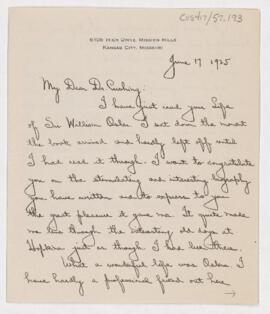 CUS417/57.193
6705 HIGH DRIVE, MISSION HILLS
KANSAS CITY, MISSOURI
June 17 1925
My Dear Dr Cushing:
I have just read your Life
of Sir William Osler. I sat down the moment
the book arrived and hardly left off until
I had read it through. I want to congratulate
you on the stimulating and interesting biography
you have written and to express to you
the great pleasure it gave me. It quite made
me live through the interesting old days at
Hopkins just as though I had been there.
What a wonderful life was Osler's. I
have hardly a professional friend out here
→